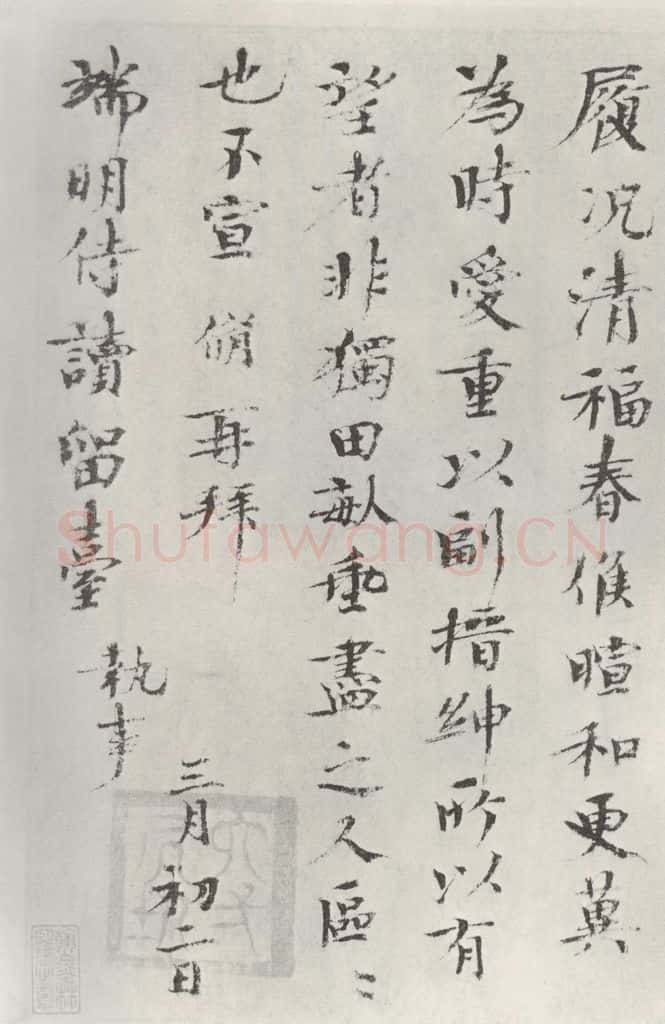 履況清福春候暄和更冀
為時愛重以副搢紳所以有
望者非獨田畝垂盡之人區〻
也不宣 脩再拜 三月初二日
端明侍讀留臺 執事
Shufawang.CN